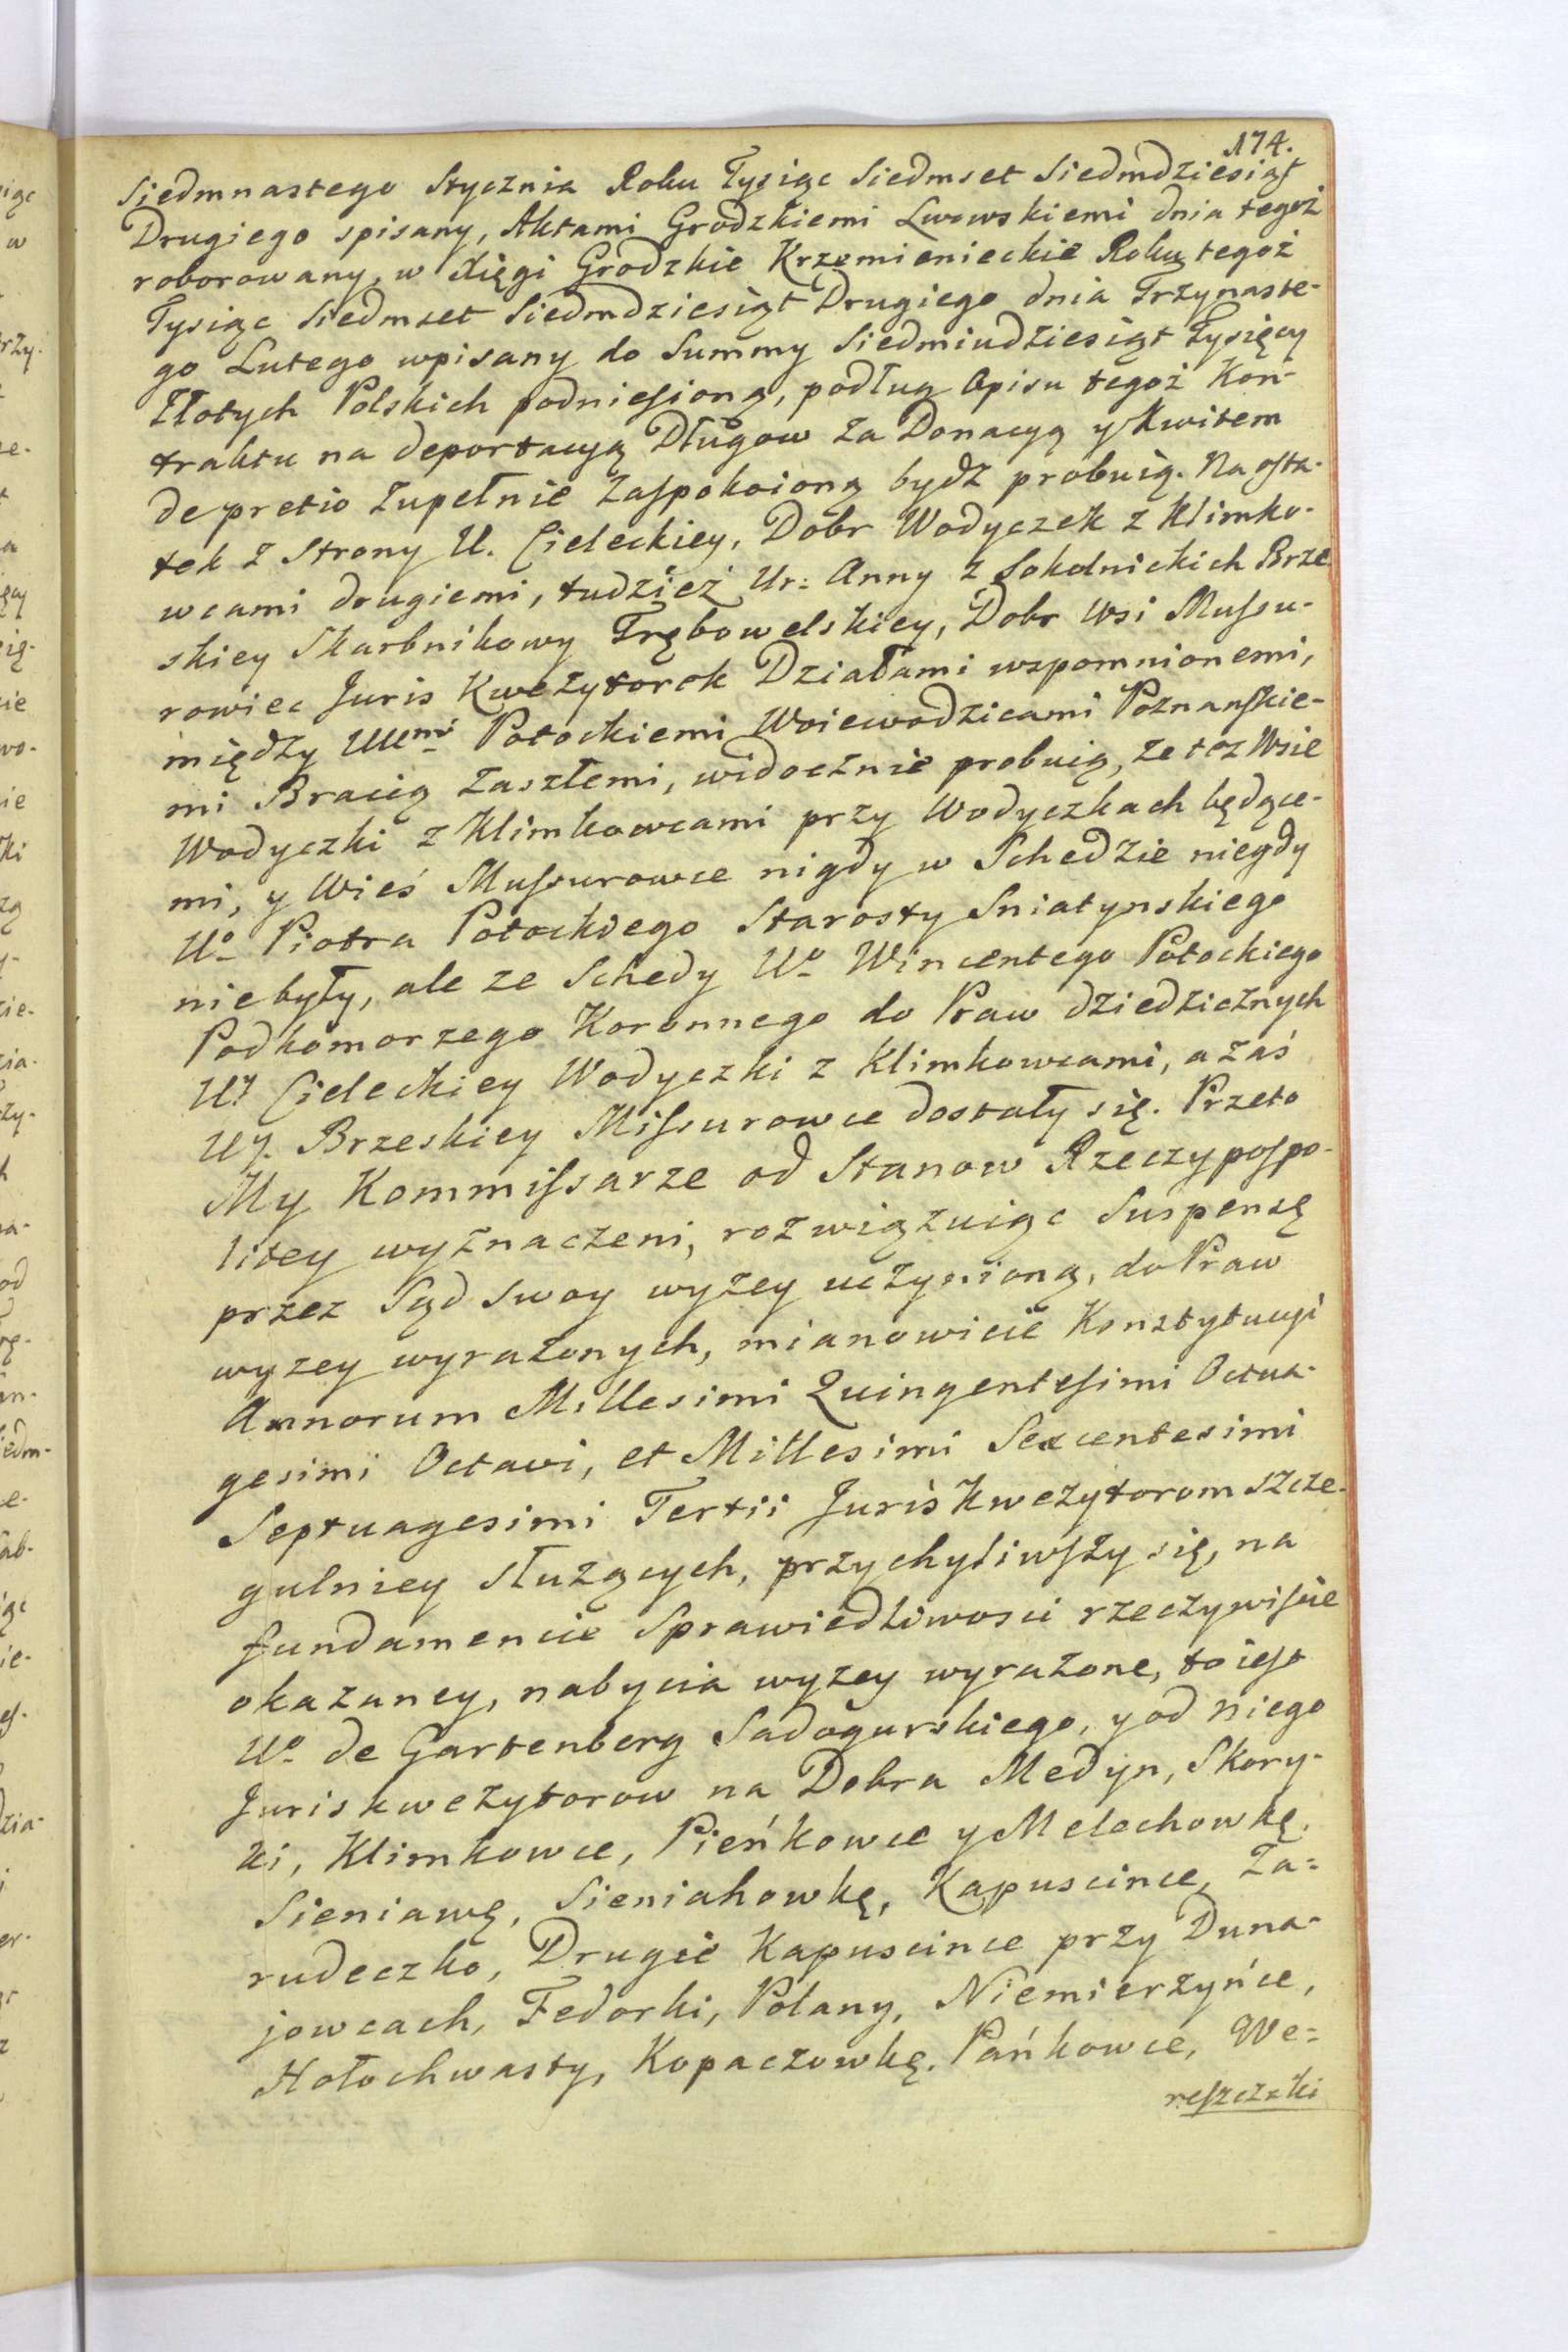 174.
Siedmnastego Stycznia Roku Tysiąc Siedmset Siedmdziesiąt
Drugiego spisany, Aktami Grodzkiemi Lwowskiemi dnia tegoż
roborowany, w Xięgi Grodzkie Krzemienieckie Roku tegoż
Tysiąc Siedmset Siedmdziesiąt Drugiego dnia Trzynaste-
go Lutego wpisany do Summy Siedmiudziesiąt Tysięcy
Złotych Polskich podniesioną, podług Opisu tegoż Kon-
traktu na deportacyą Długow za Donacyą y Kwitem
de pretio zupełnie zaspokoioną bydz probuią. Na osta-
tek z Strony U. Cieleckiey, Dobr Wodyczek z Klimko-
wcami drugiemi, tudzież Ur: Anny z Sokolnickich Brze-
skiey Skarbnikowy Trębowelskiey, Dobr Wsi Mussu-
rowiec Juris Kwezytorek Działami wspomnionemi,
między UUmi Potockiemi Woiewodzicami Poznanskie-
mi Bracią zaszłemi, widocznie probuią, że też Wsie
Wodyczki z Klimkowcami przy Wodyczkach będące-
mi, y Wieś Mussurowce nigdy w Schedzie niegdy
Uo Piotra Potockiego Starosty Sniatynskiego
nie były, ale ze Schedy Uo Wincentego Potockiego
Podkomorzego Koronnego do Praw dziedzicznych
Uy Cieleckiey Wodyczki z Klimkowcami, a zaś
Uy. Brzeskiey Missurowce dostały się. Przeto
My Kommissarze od Stanow Rzeczypospo-
litey wyznaczeni, rozwiązuiąc Suspensę
przez Sąd Swoy wyżey uczynioną, do Praw
wyzey wyrażonych, mianowicie Konstytucyi
Annorum Millesimi Quingentesimi Octua-
gesimi Octavi, et Millesimi Sexcentesimi
Septuagesimi Tertii Juris Kwezytorom szcze-
gulniey służących, przychyliwszy się, na
fundamencie Sprawiedliwosci rzeczywiscie
okazaney, nabycia wyzey wyrażone, to iest
Uo de Gartenberg Sadogurskiego, y od niego
Juris kwezytorow na Dobra Medyn, Skory-
ki, Klimkowce, Pieńkowce y Melechowkę,
Sieniawę, Sieniahowkę, Kapuscince, Za=
rudeczko, Drugie Kapuscince przy Duna-
jowcach, Fedorki, Polany, Niemierzyńce,
Hołochwasty, Kopaczowkę, Pańkowce, We=
reszczaki